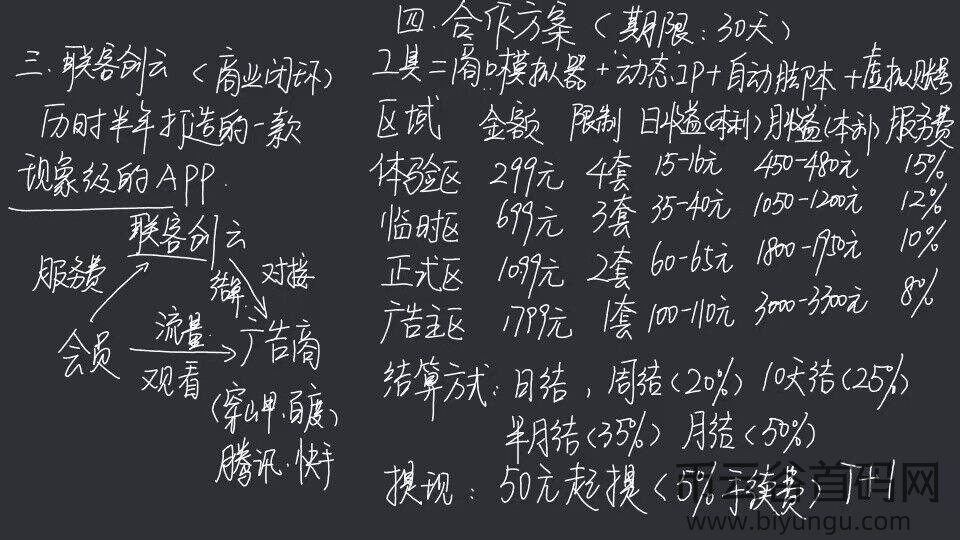 三.联客创云（商业闭环）
历时半年打造的一款
现象级的APP.
联客创云
服务费
结算
对接
会员
流量
观看
广告商
(穿山甲.百度)
腾讯.快手
四.合作方案（期限:30天）
工具=商口模拟器+动态IP+自动脚本+虚拟账号
区域 金额 限制 日收益(本利) 月收益(本利) 服务费
体验区 299元 4套 15-16元 450-480元 15%
临时区 699元 3套 35-40元 1050-1200元 12%
正式区 1099元 2套 60-65元 1800-1950元 10%
广告主区 1799元 1套 100-110元 3000-3300元 8%
结算方式:日结,周结(20%) 10天结(25%)
半月结(35%) 月结(50%)
提现:50元起提(5%手续费) T+1
币云谷首码网
www.biyungu.com